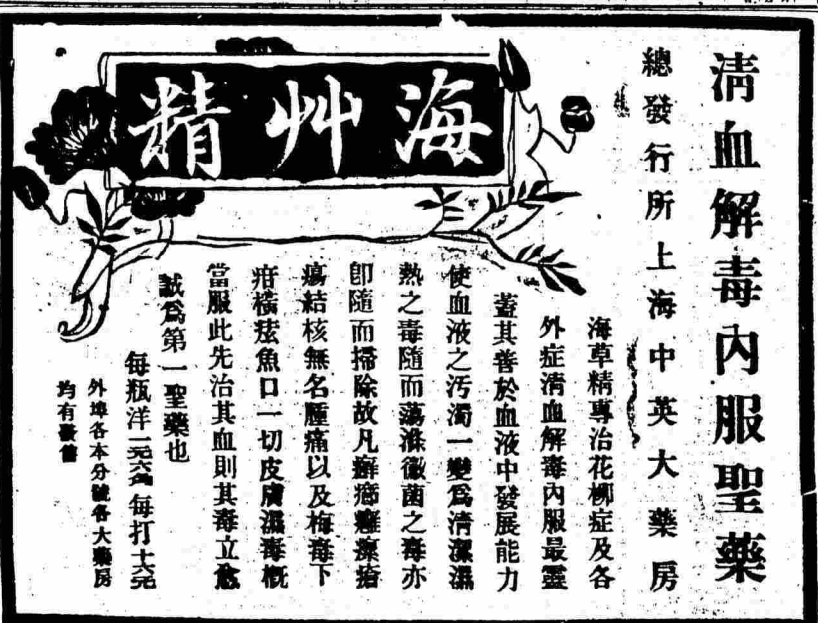 清血解毒內服聖藥
總發行所上海中英大藥房
海艸精
海草精專治花柳症及各
外症清血解毒內服最靈
蓋其善於血液中發展能力
使血液之污濁一變爲清潔濕
熱之毒隨而蕩滌黴菌之毒亦
卽隨而掃除故凡癬疥癰瘰瘡
瘍結核無名腫痛以及梅毒下
疳橫痃魚口一切皮膚濕毒概
當服此先治其血則其毒立愈
誠爲第一聖藥也
每瓶洋一元六角每打十六元
外埠各本分號各大藥房
均有發售